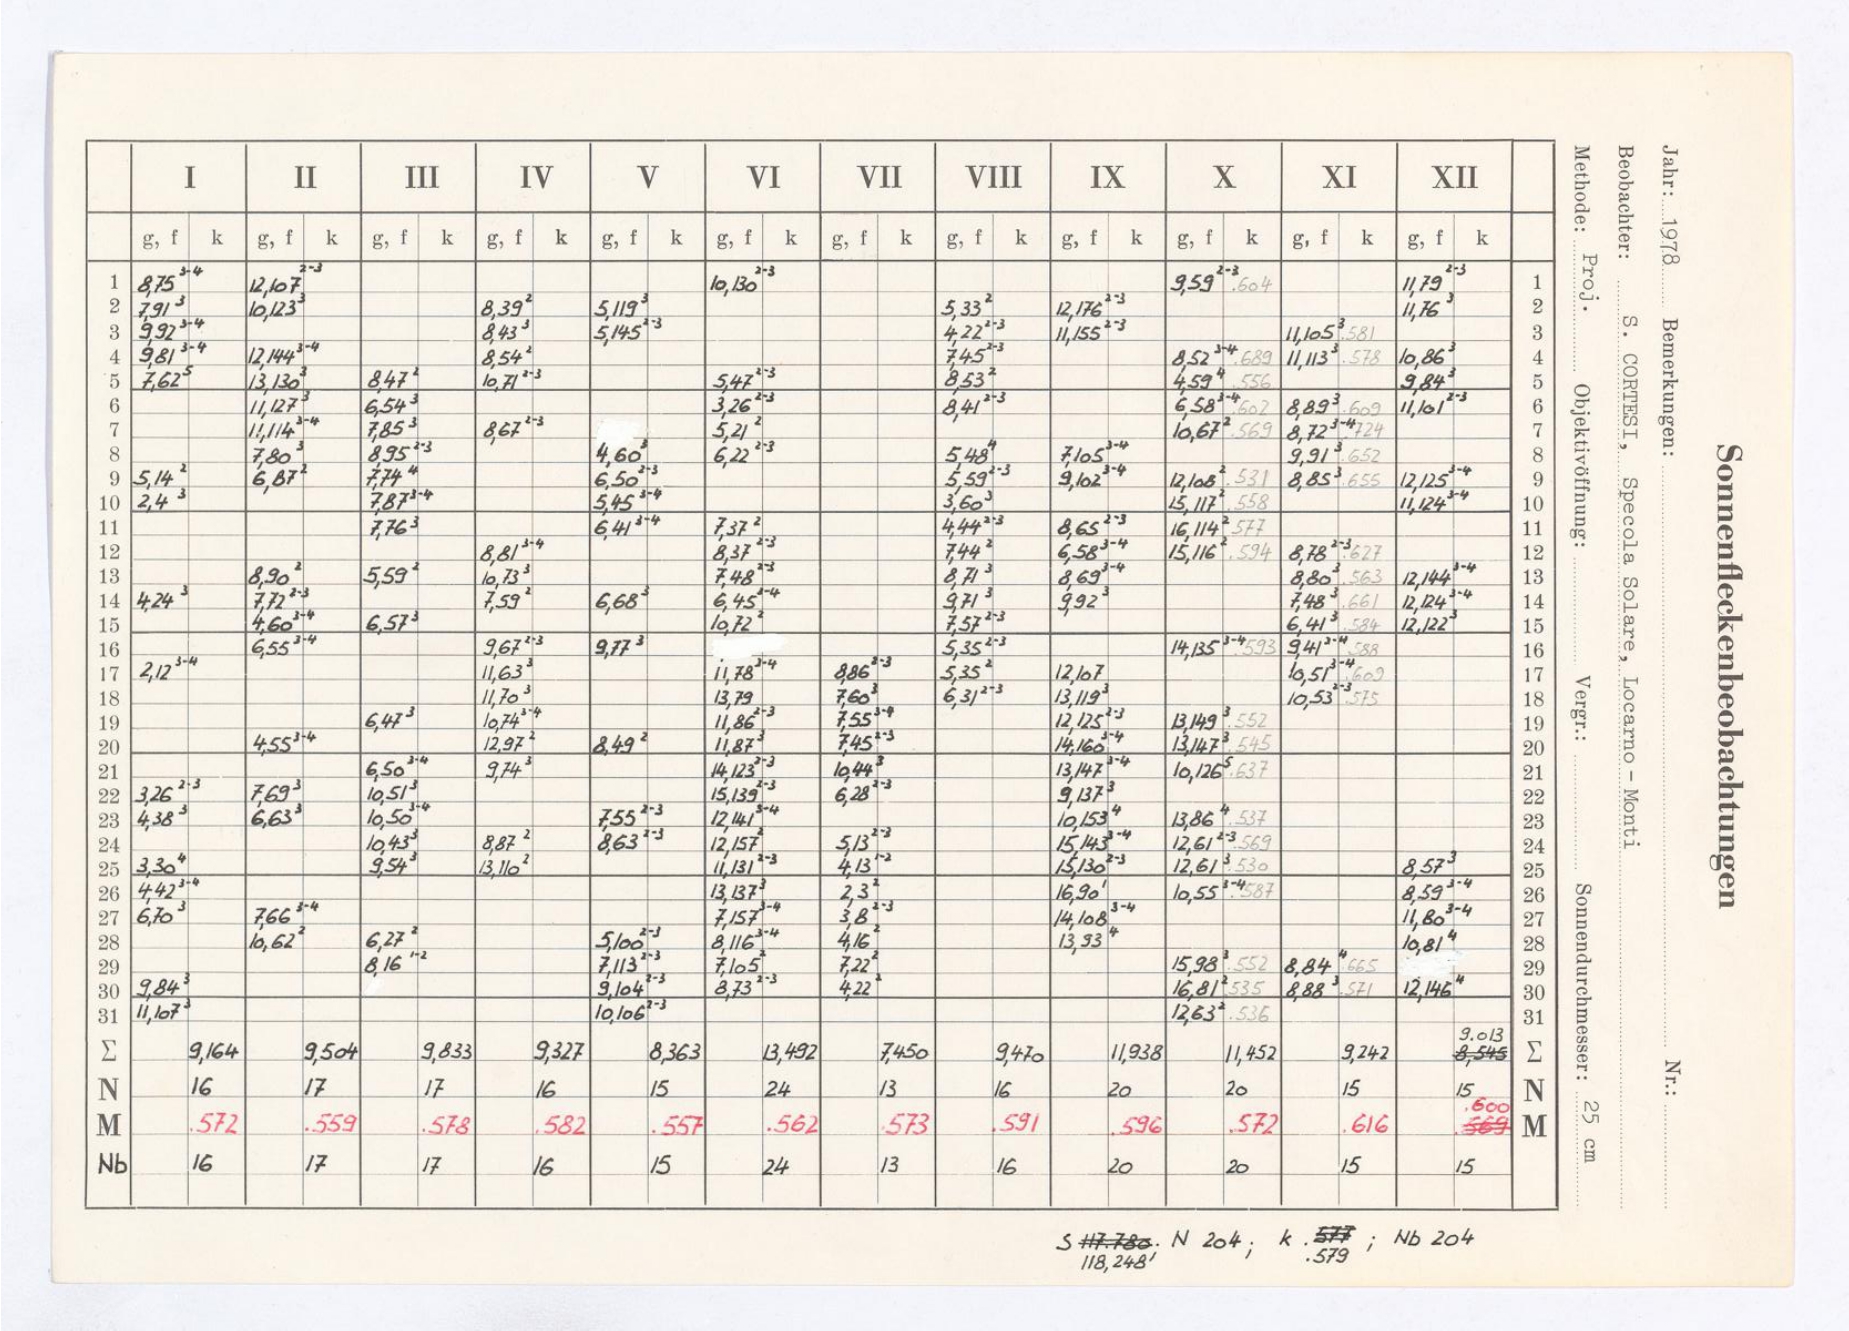 I II III IV V VI VII VIII IX X XI XII
g, f k g, f k g, f k g, f k g, f k g, f k g, f k g, f k g, f k g, f k g, f k g, f k
1 8,75 3-4 12,107 2-3 10,130 2-3 9,59 2-3 .604 11,79 2-3 1
2 7,91 3 10,123 3 8,39 2 5,119 3 5,33 2 12,176 2-3 11,76 3 2
3 9,92 3-4 8,43 3 5,145 2-3 4,22 2-3 11,155 2-3 11,105 3 .581 3
4 9,81 3-4 12,144 3-4 8,54 2 7,45 2-3 8,52 3-4 .689 11,113 3 .578 10,86 3 4
5 7,62 5 13,130 3 8,47 2 10,71 2-3 5,47 2-3 8,53 2 4,59 4 .556 9,84 3 5
6 11,127 3 6,54 3 3,26 2-3 8,41 2-3 6,58 3-4 .602 8,89 3 .609 11,101 2-3 6
7 11,114 3-4 7,85 3 8,67 2-3 5,21 2 10,67 2 .569 8,72 3-4 .724 7
8 7,80 3 8,95 2-3 4,60 3 6,22 2-3 5,48 4 7,105 3-4 9,91 3 .652 8
9 5,14 2 6,87 2 7,74 4 6,50 2-3 5,59 2-3 9,102 3-4 12,108 2 .531 8,85 3 .655 12,125 3-4 9
10 2,4 3 7,87 3-4 5,45 3-4 3,60 3 15,117 2 .558 11,124 3-4 10
11 7,76 3 6,41 3-4 7,37 2 4,44 2-3 8,65 2-3 16,114 2 .577 11
12 8,81 3-4 8,37 2-3 7,44 2 6,58 3-4 15,116 2 .594 8,78 2-3 .627 12
13 8,90 2 5,59 2 10,73 3 7,48 2-3 8,71 3 8,69 3-4 8,80 3 .563 12,144 3-4 13
14 4,24 3 7,72 2-3 7,59 2 6,68 3 6,45 3-4 9,71 3 9,92 3 7,48 3 .661 12,124 3-4 14
15 4,60 3-4 6,57 3 10,72 2 7,57 2-3 6,41 3 .584 12,122 3 15
16 6,55 3-4 9,67 2-3 9,77 3 5,35 2-3 14,135 3-4 .593 9,41 .588 16
17 2,12 3-4 11,63 3 11,78 3-4 8,86 2-3 5,35 2 12,107 10,51 3-4 .609 17
18 11,70 3 13,79 7,60 3 6,31 2-3 13,119 3 10,53 2-3 .575 18
19 6,47 3 10,74 3-4 11,86 2-3 7,55 3-4 12,125 2-3 13,149 3 .552 19
20 4,55 3-4 12,97 2 8,49 2 11,87 3 7,45 2-3 14,160 3-4 13,147 3 .545 20
21 6,50 3-4 9,74 3 14,123 2-3 10,44 3 13,147 3-4 10,126 5 .637 21
22 3,26 2-3 7,69 3 10,51 3 15,139 2-3 6,28 2-3 9,137 3 22
23 4,38 3 6,63 3 10,50 3-4 7,55 2-3 12,141 3-4 10,153 4 13,86 4 .537 23
24 10,43 3 8,87 2 8,63 2-3 12,157 2 5,13 2-3 15,143 3-4 12,61 2-3 .569 24
25 3,30 4 9,54 3 13,110 2 11,131 2-3 4,13 1-2 15,130 2-3 12,61 3 .530 8,57 3 25
26 4,42 3-4 13,137 3 2,3 2 16,90 1 10,55 3-4 .587 8,59 3-4 26
27 6,70 3 7,66 3-4 7,157 3-4 3,8 2-3 14,108 3-4 11,80 3-4 27
28 10,62 2 6,27 2 5,100 2-3 8,116 3-4 4,16 2 13,93 4 10,81 4 28
29 8,16 1-2 7,113 2-3 7,105 2 7,22 2 15,98 3 .552 8,84 4 .665 29
30 9,84 3 9,104 2-3 8,73 2-3 4,22 2 16,81 2 .535 8,88 3 .571 12,146 4 30
31 11,107 3 10,106 2-3 12,63 2 .536 31
9.013
Σ 9,164 9,504 9,833 9,327 8,363 13,492 7,450 9,470 11,938 11,452 9,242 8,545 Σ
N 16 17 17 16 15 24 13 16 20 20 15 15 N
.600
M .572 .559 .578 .582 .557 .562 .573 .591 .596 .572 .616 .569 M
Nb 16 17 17 16 15 24 13 16 20 20 15 15
S 117.780; N 204; k .577; Nb 204
118,248 .579
Sonnenfleckenbeobachtungen
Jahr: 1978 Bemerkungen: Nr.:
Beobachter: S. CORTESI, Specola Solare, Locarno - Monti
Methode: Proj. Objektivöffnung: Vergr.: Sonnendurchmesser: 25 cm